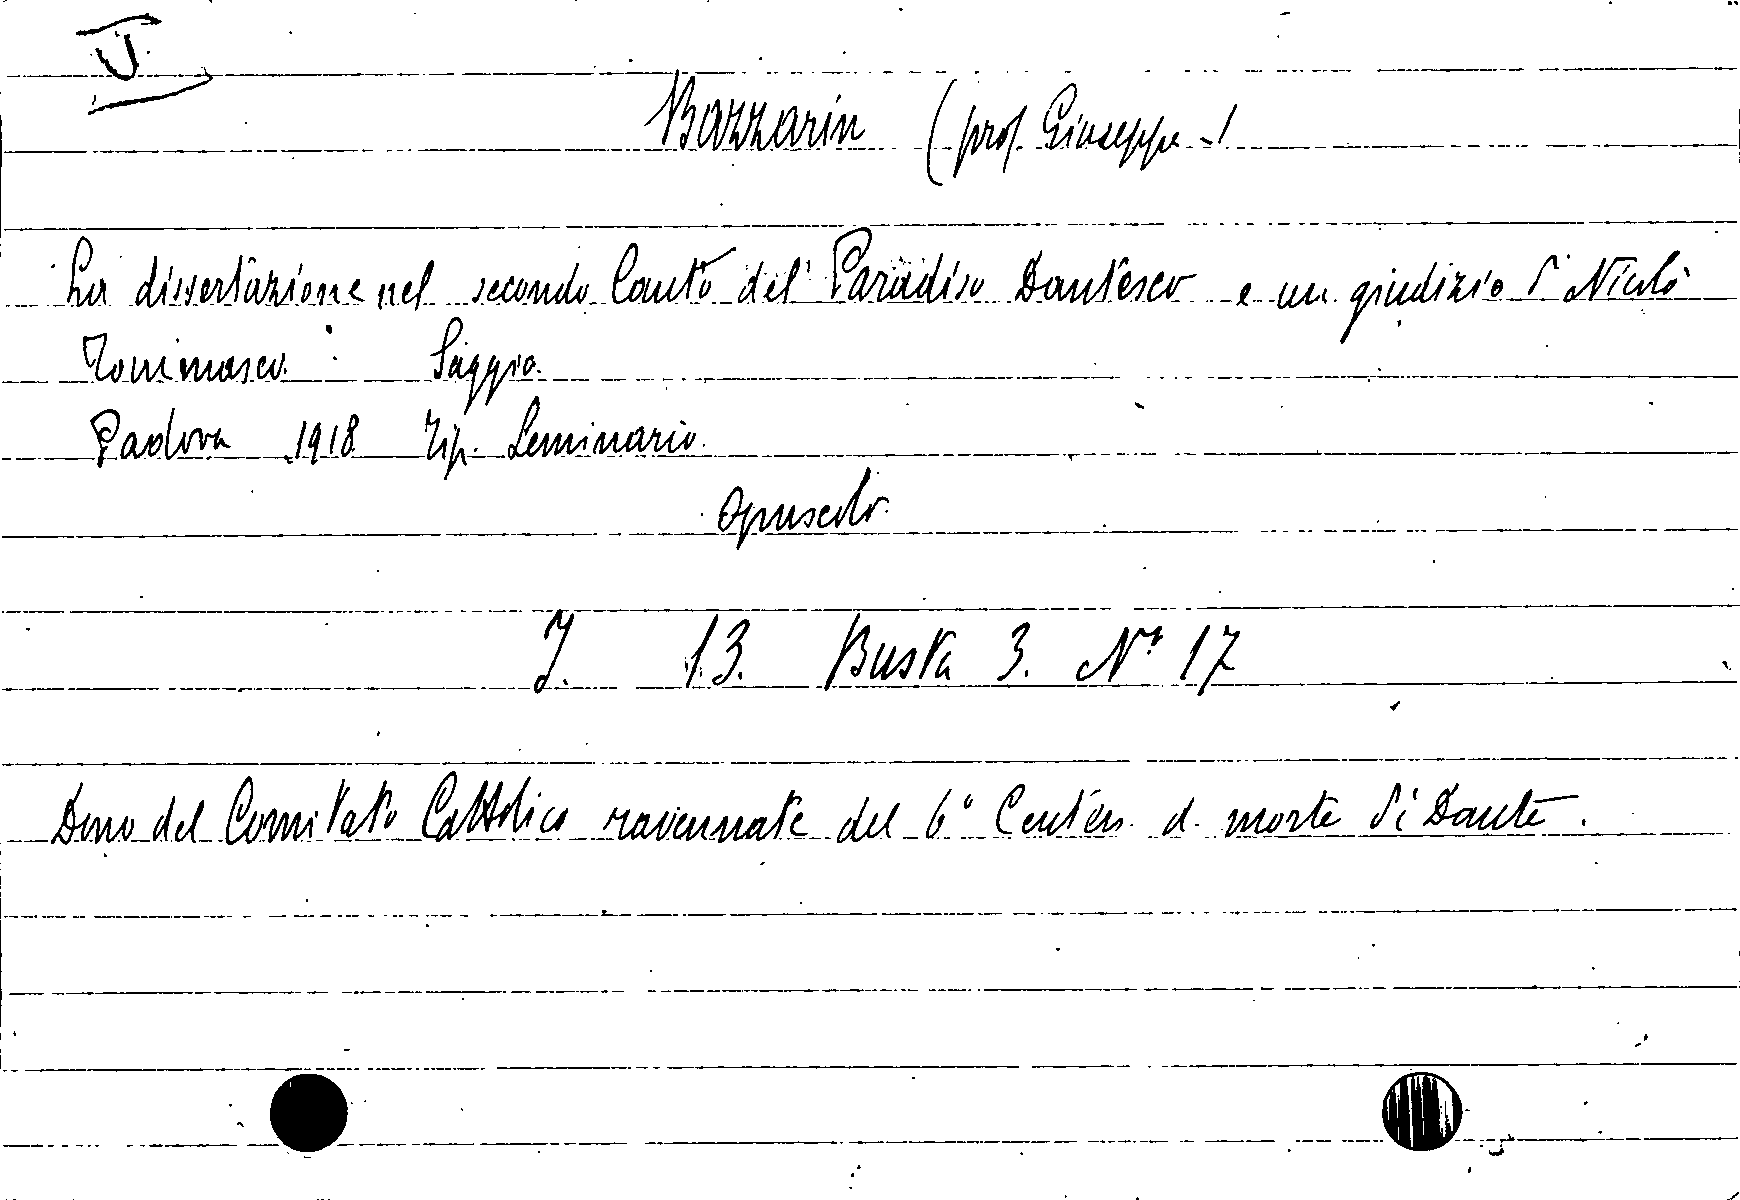 V
Bazzarin (prof. Giuseppe-)
La dissertazione nel secondo Canto del Paradiso Dantesco e un giudizio di Nicolò
Tommaseo. Saggio.
Padova 1918 Tip. Seminario.
Opuscolo.
I. 13. Busta 3. N° 17
Dono del Comitato Cattolico ravennate del 6° Centen. d. morte di Dante.